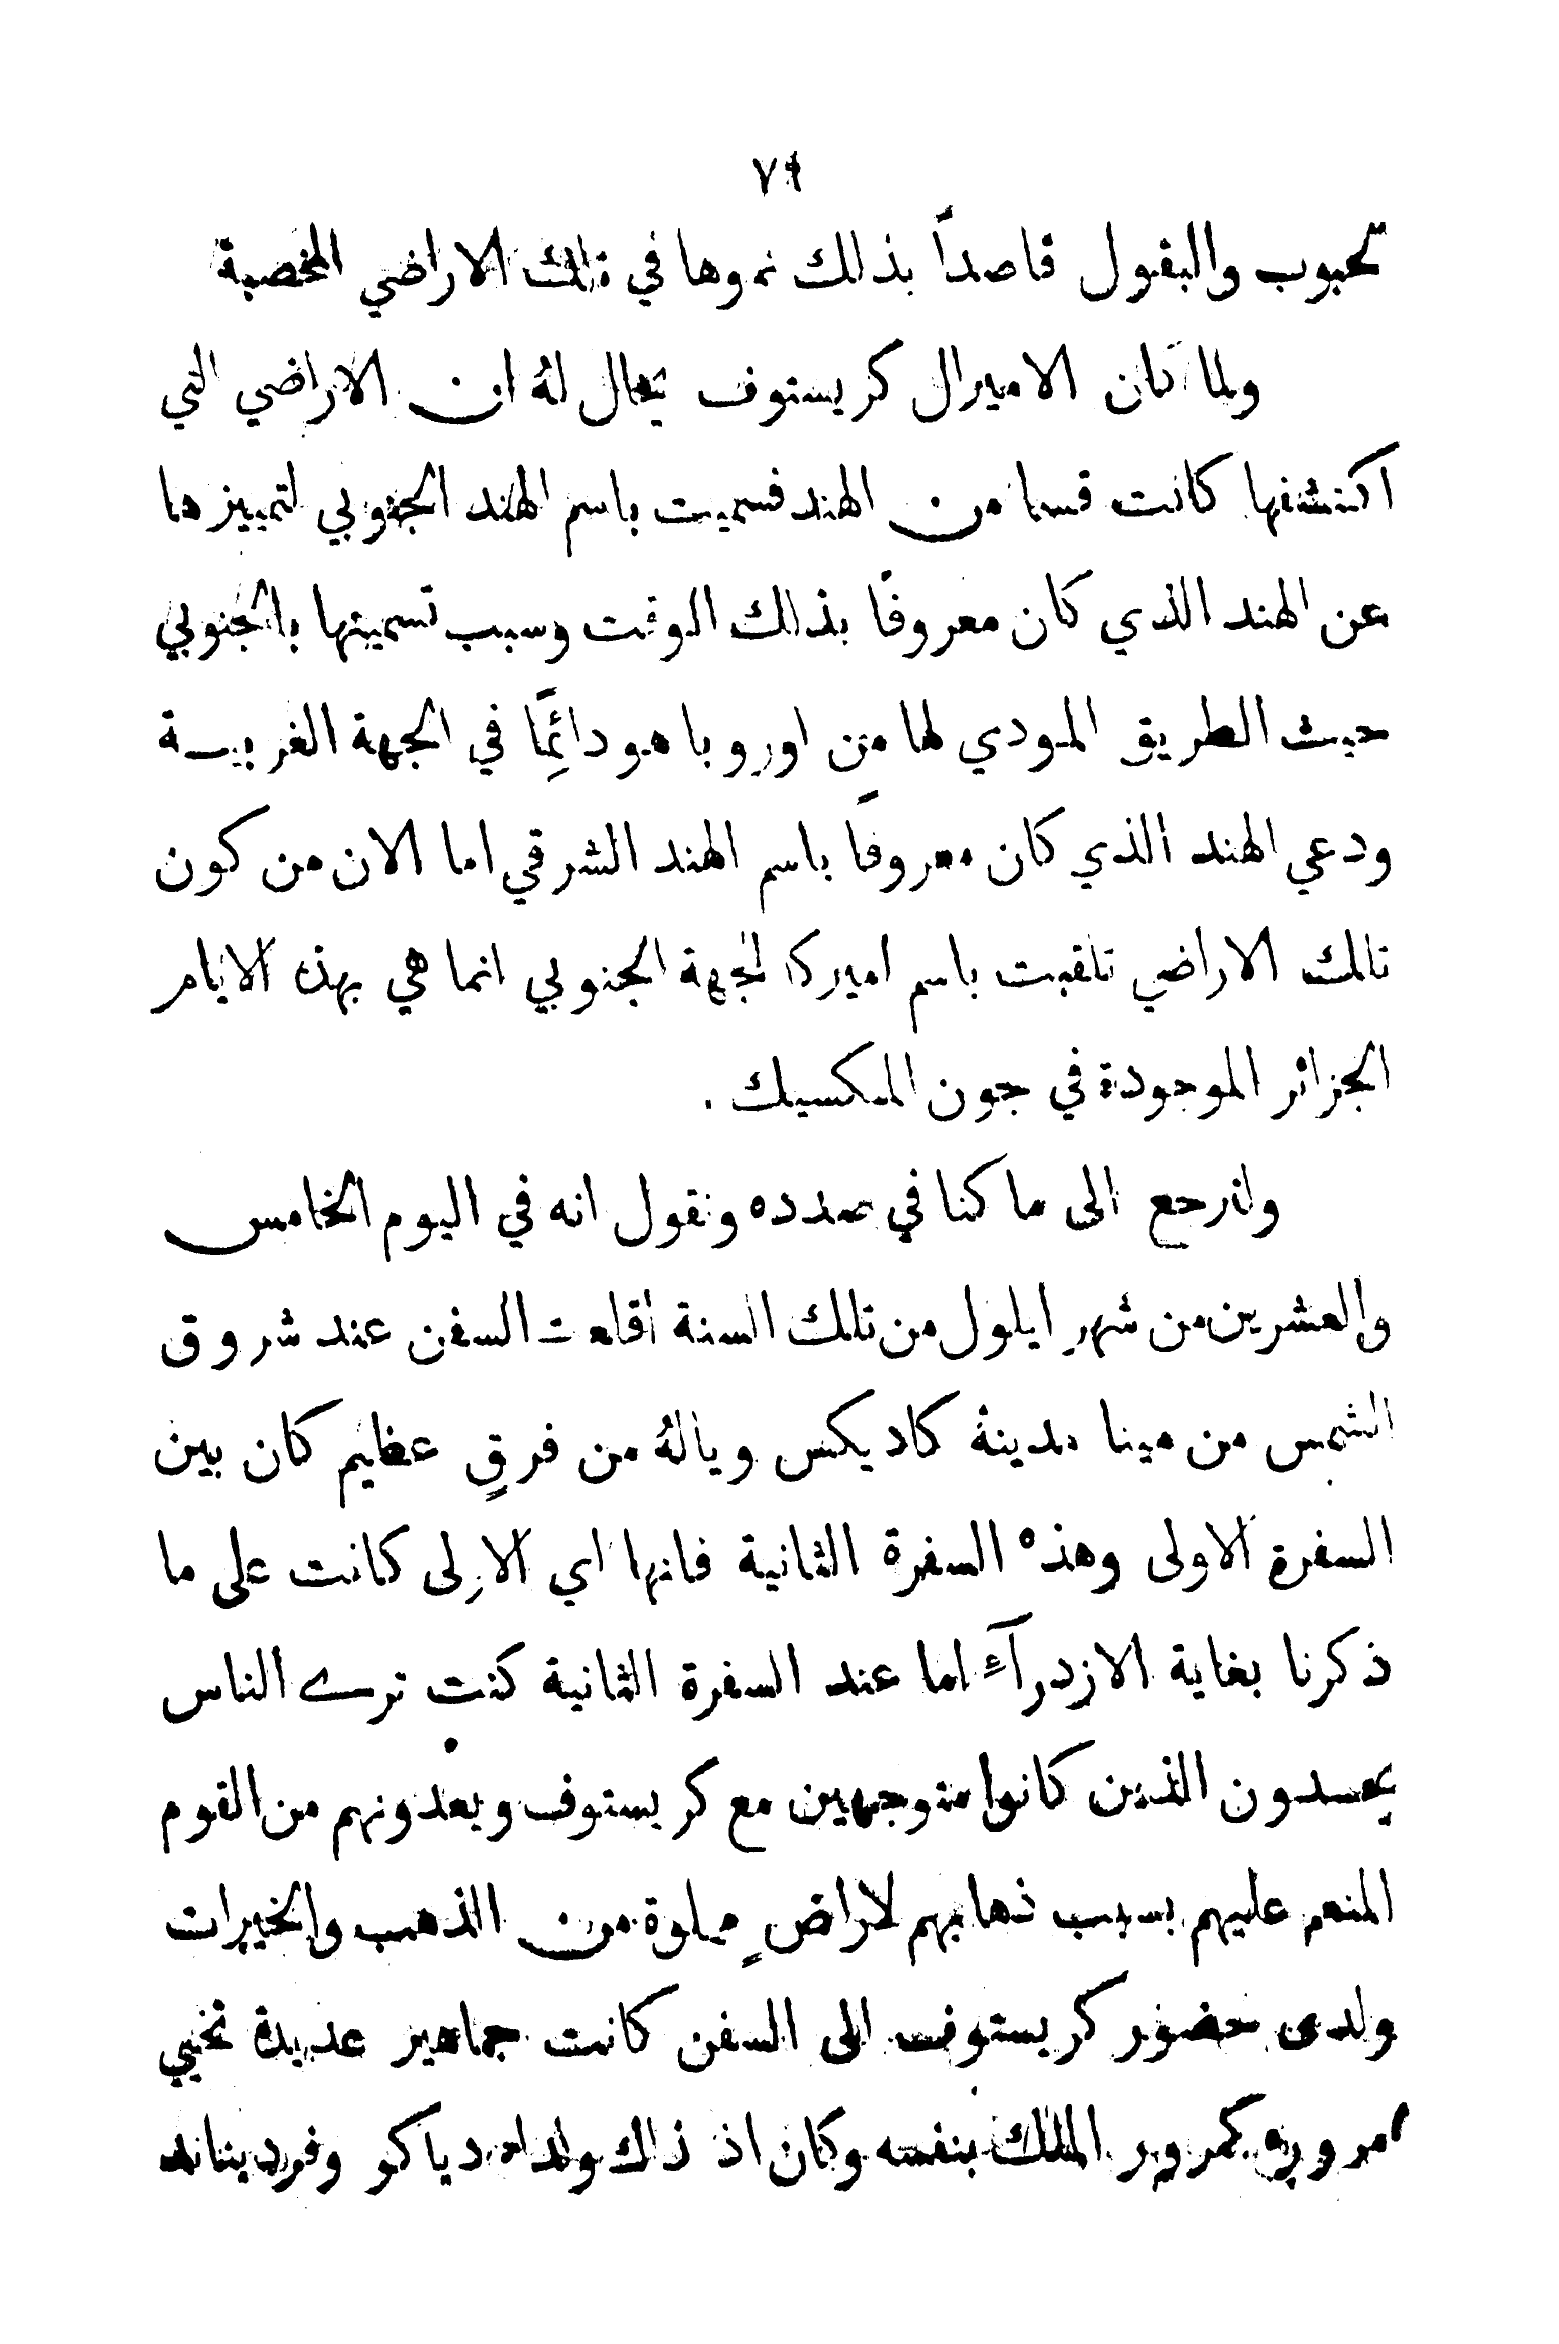 ٧٩
لحبوب والبقول قاصداً بذلك نموها في تلك الاراضي المخصبة
ولما كان الاميرال كريستوف يخال لهُ ان الاراضي التي
اكتشفها كانت قسما من الهند فسميت باسم الهند الجنوبي لتمييزها
عن الهند الذي كان معروفًا بذلك الوقت وسبب تسميتها بالجنوبي
حيث الطريق المودي لها من اوروبا هو دائِمًا في الجهة الغربيـة
ودعي الهند الذي كان معروفًا باسم الهند الشرقي اما الان من كون
تلك الاراضي تلقبت باسم اميركا لجهة الجنوبي انما هي بهذ الايام
الجزائر الموجودة في جون المكسيك .
ولنرجع الى ما كنا في صدده ونقول انه في اليوم الخامس
والعشرين من شهرِ ايلول من تلك السنة اقلعت السفن عند شروق
الشمس من مينا مدينة كاديكس ويالهُ من فرقٍ عظيم كان بين
السفرة الاولى وهذه السفرة الثانية فانها اي الاولى كانت على ما
ذكرنا بغاية الازدرآءِ اما عند السفرة الثانية كنت ترى الناس
يحسدون الذين كانوا متوجهين مع كريستوف ويعدونهم من القوم
المنعم عليهم بسبب ذهابهم لاراضٍ مملوة من الذهب والخيرات
ولدى حضور كريستوف الى السفن كانت جماهير عديدة تحيي
مروره كمرور الملك بنفسه وكان اذ ذاك ولداه دياكو وفرديناند